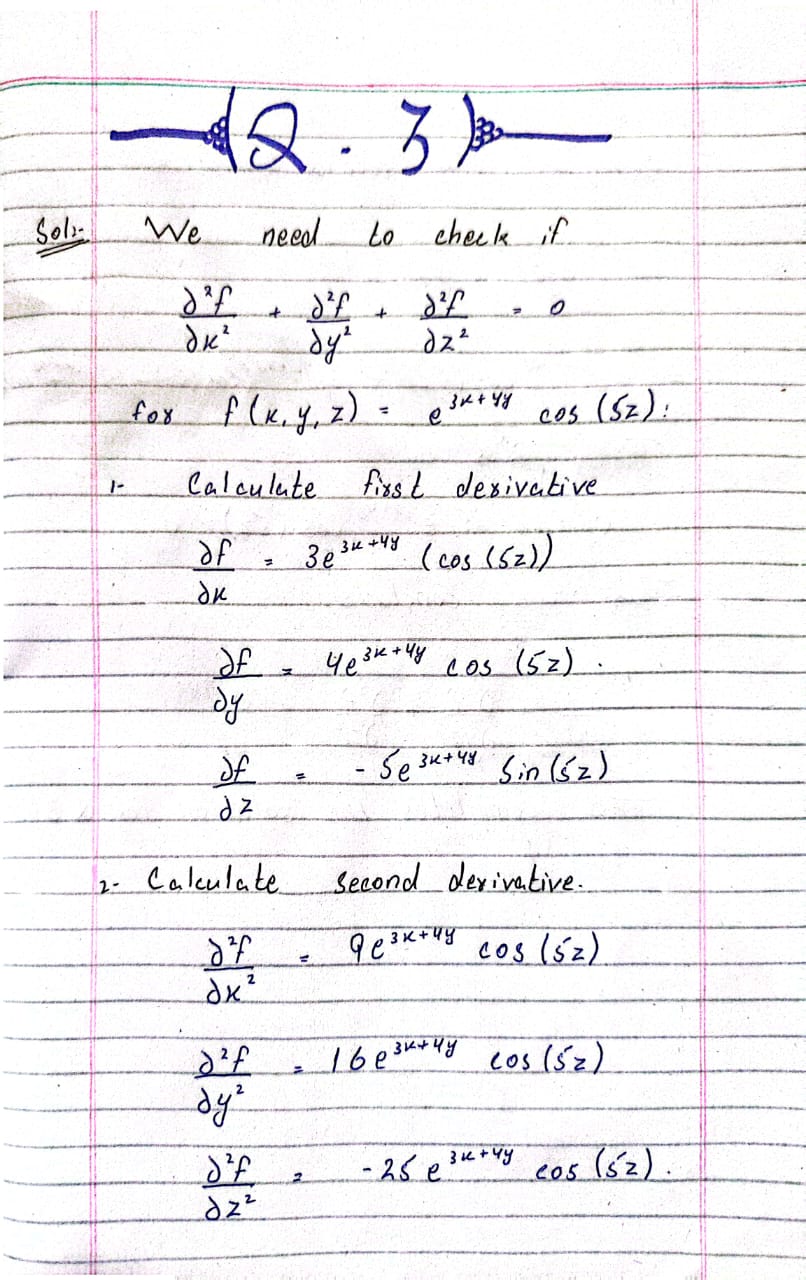 Q.3
Sol:- We need to check if
∂²f/∂x² + ∂²f/∂y² + ∂²f/∂z² = 0
for f(x, y, z) = e^{3x+4y} cos (5z):
1- Calculate first derivative
∂f/∂x = 3e^{3x+4y} (cos (5z))
∂f/∂y = 4e^{3x+4y} cos (5z).
∂f/∂z = -5e^{3x+4y} Sin (5z)
2- Calculate second derivative.
∂²f/∂x² = 9e^{3x+4y} cos (5z)
∂²f/∂y² = 16e^{3x+4y} cos (5z)
∂²f/∂z² = -25e^{3x+4y} cos (5z).